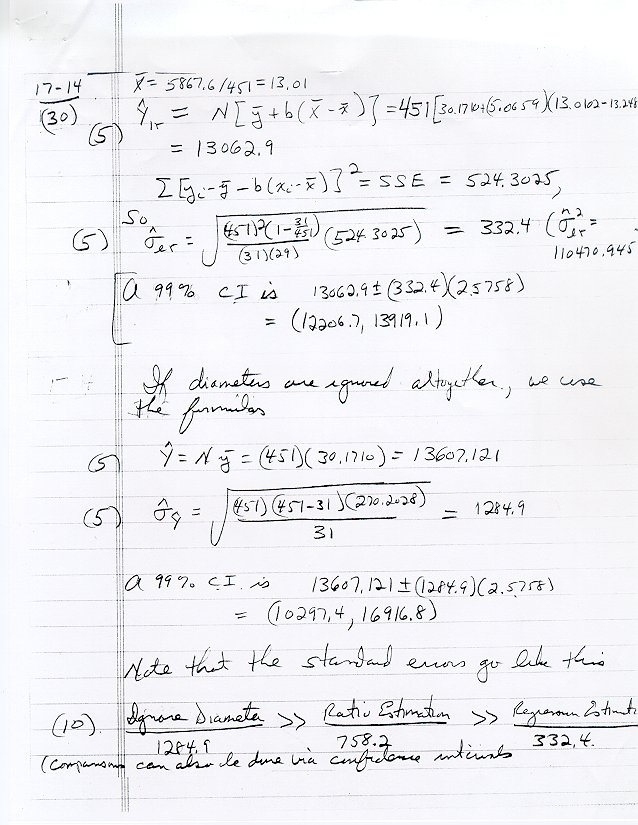 17-14 X̄ = 5867.6/451 = 13.01
(30) (5) Ŷlr = N[ȳ + b(X̄ - x̄)] = 451[30.1710+(5.0659)(13.0102-13.248
= 13062.9
Σ[yi - ȳ - b(xi - x̄)]² = SSE = 524.3025,
So
(5) σ̂er = √((451)²(1-31/451)/(31)(29) (524.3025)) = 332.4 (σ̂²er =
110470.945
A 99% CI is 13062.9 ± (332.4)(2.5758)
= (12206.7, 13919.1)
If diameters are ignored altogether, we use
the formulas
(5) Ŷ = Nȳ = (451)(30.1710) = 13607.121
(5) σ̂ŷ = √((451)(451-31)(270.2028)/31) = 1284.9
A 99% C.I. is 13607.121 ± (1284.9)(2.5758)
= (10297.4, 16916.8)
Note that the standard errors go like this
(10). Ignore Diameter >> Ratio Estimation >> Regression Estimati
1284.9 758.2 332.4.
(Comparisons can also be done via confidence intervals